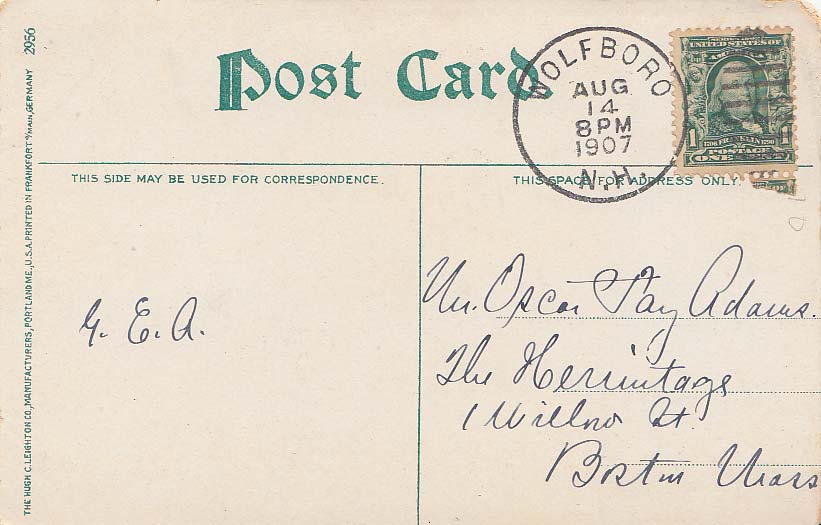 2956
Post Card
WOLFBORO
AUG
14
8PM
1907
N.H.
UNITED STATES OF
1
FRANKLIN
POSTAGE
ONE
THIS SIDE MAY BE USED FOR CORRESPONDENCE.
THIS SPACE FOR ADDRESS ONLY.
G. E. A.
Mr. Oscar Fay Adams.
The Hermitage
1 Willow St.
Boston Mass
THE HUGH C. LEIGHTON CO., MANUFACTURERS, PORTLAND ME., U.S.A. PRINTED IN FRANKFORT o/MAIN, GERMANY